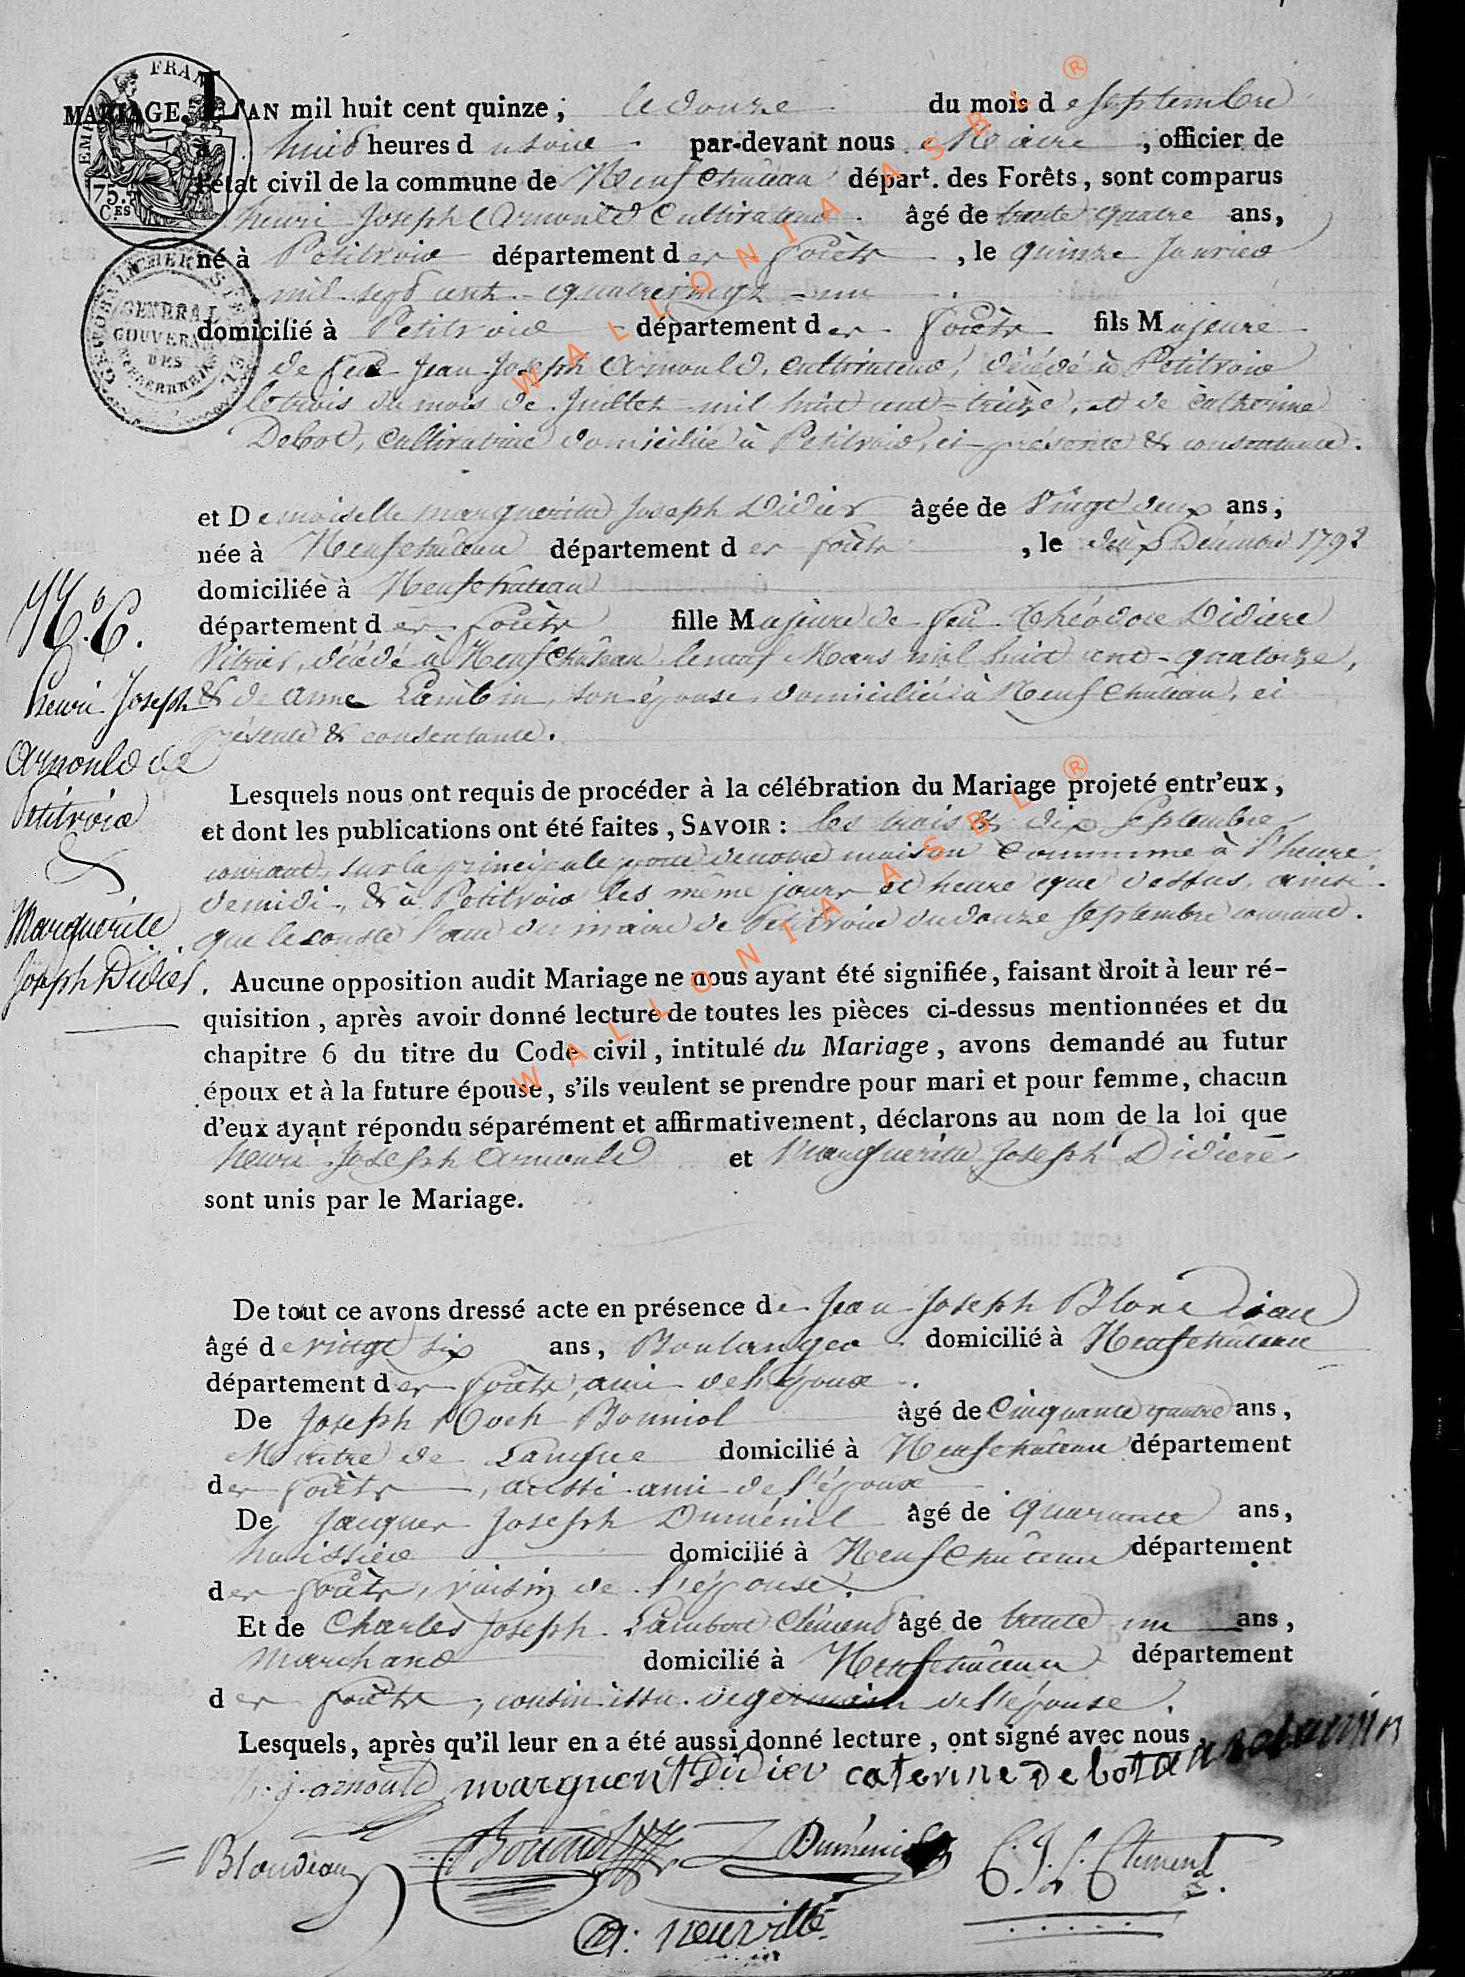 MARIAGE. L'AN mil huit cent quinze, le douze du mois de septembre
à huit heures du soir par-devant nous Maire, officier de
l'état civil de la commune de Neufchâteau départ. des Forêts, sont comparus
henri Joseph Arnould Cultivateur âgé de trente quatre ans,
né à Petitvoir département des forêts, le quinze Janvier
mil sept cent quatrevingt un
domicilié à Petitvoir département des forêts fils Majeur
de feu Jean Joseph Arnould, cultivateur, décédé à Petitvoir
le trois du mois de Juillet mil huit cent treize, et de catherine
Debot, Cultivatrice domiciliée à Petitvoir, ci présente & consentante.
et Demoiselle marguerite Joseph Didier âgée de Vingt deux ans,
née à Neufchâteau département des forêts, le dix Décembre 1792
domiciliée à Neufchateau
département des forêts fille Majeure de feu Théodore Didier
Vitrier, décédé à Neufchâteau le neuf Mars mil huit cent quatorze,
& de anne Lambin, son épouse, domiciliée à Neufchâteau, ci
présente & consentante.
N.° 6.
henri Joseph
Arnould de
Petitvoir
&
Marguerite
Joseph Didier.
Lesquels nous ont requis de procéder à la célébration du Mariage projeté entr'eux,
et dont les publications ont été faites, SAVOIR : les trois & dix Septembre
courant, sur la principale porte de notre maison Commune à l'heure
de midi, & à Petitvoir les même jours et heure que dessus, ainsi
que le conste l'acte du maire de Petitvoir du douze septembre courant.
Aucune opposition audit Mariage ne nous ayant été signifiée, faisant droit à leur ré-
quisition, après avoir donné lecture de toutes les pièces ci-dessus mentionnées et du
chapitre 6 du titre du Code civil, intitulé du Mariage, avons demandé au futur
époux et à la future épouse, s'ils veulent se prendre pour mari et pour femme, chacun
d'eux ayant répondu séparément et affirmativement, déclarons au nom de la loi que
henri Joseph Arnould et Marguerite Joseph Didier
sont unis par le Mariage.
De tout ce avons dressé acte en présence de Jean Joseph Blondiau
âgé de vingt six ans, Boulanger domicilié à Neufchâteau
département des forêts, ami de l'époux.
De Joseph Roch Bonniol âgé de Cinquante quatre ans,
Maître de Langue domicilié à Neufchâteau département
des forêts, aussi ami de l'époux
De Jacques Joseph Duménil âgé de quarante ans,
huissier domicilié à Neufchâteau département
des forêts, voisin de l'épouse.
Et de Charles Joseph Lambert Clément âgé de trente un ans,
Marchand domicilié à Neufchâteau département
des forêts, cousin issu de germain de l'épouse.
Lesquels, après qu'il leur en a été aussi donné lecture, ont signé avec nous
h. j. arnould marguerit Didier caterine Debot
Blondiau Bonniol Duménil C. J. L. Clement
neuville
FRAN
75.
CES
GENERAL
GOUVERN
DES
WALLONIA ASBL ®
WALLONIA ASBL ®